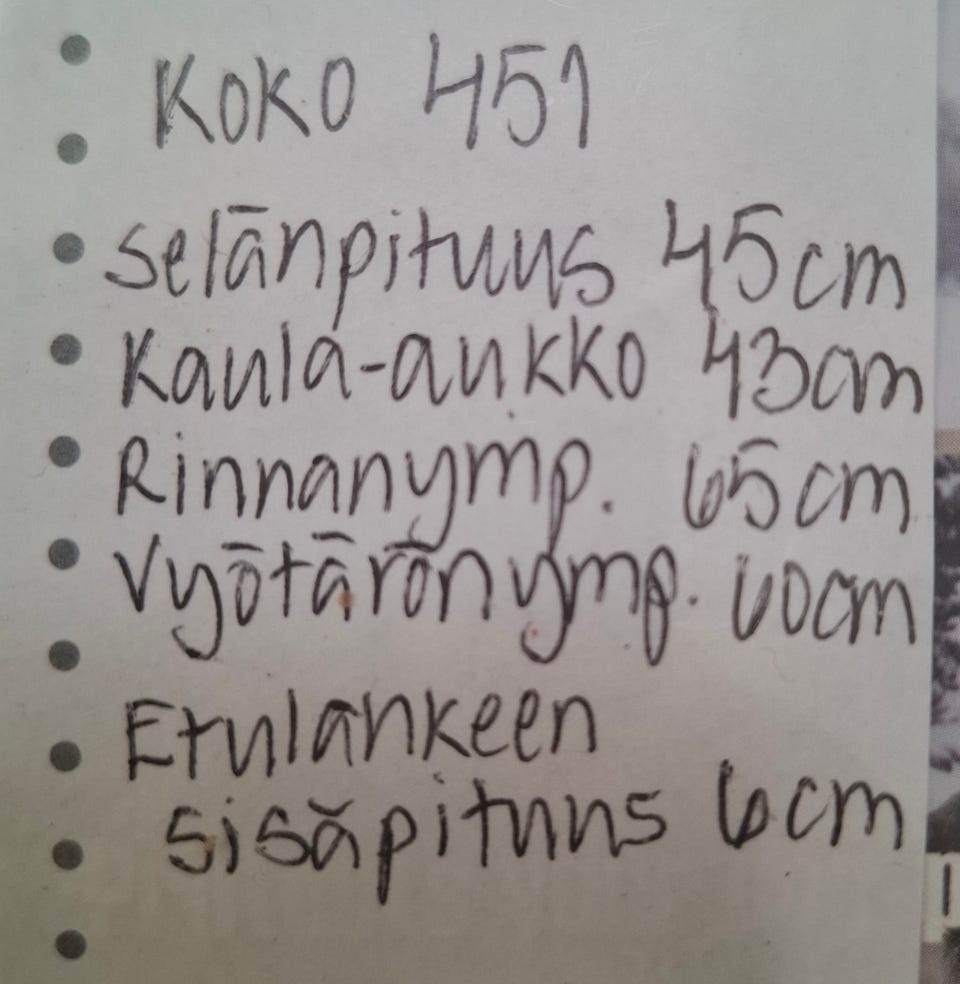 KOKO 451
Selänpituus 45cm
Kaula-aukko 43cm
Rinnanymp. 65cm
Vyötärönymp. 60cm
Etulahkeen
sisäpituus 6cm